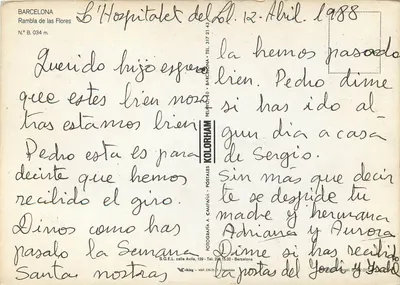 BARCELONA
Rambla de las Flores
N.º B. 034 m.
L'Hospitalet del Ll. 12-Abril. 1988
Querido hijo espero
que estes bien noso
tras estamos bien
Pedro esta es para
decirte que hemos
recibido el giro.
Dinos como has
pasalo la Semana
Santa nostras
la hemos pasado
bien. Pedro dime
si has ido al-
gun dia a casa
de Sergio.
Sin mas que decir
te se despide tu
madre y hermana
Adriana y Aurora
Dime si has recibido
la postas del Jordi y Isabel
KOLORHAM